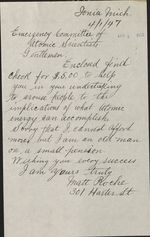 Ionia Mich.
4/1/47
Emergency Committee of
Atomic Scientists
Gentlemen.
Enclosed find
Check for $5.00 to help
you in your undertaking
to arouse people to the
implications of what Atomic
energy can accomplish.
Sorry that I cannot afford
more but I am an old man
on a small pension.
Wishing you every success
I am yours truly
Matt Roche
301 Harter St